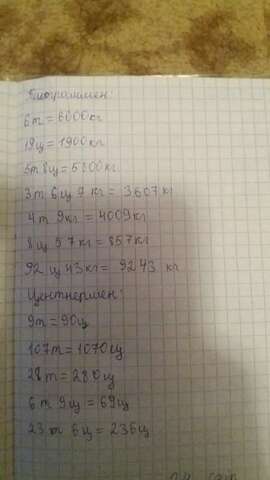 Килограммен:
6т = 6000кг
19ц = 1900кг
5т 8ц = 5800кг
3т 6ц 7 кг = 3607кг
4т 9кг = 4009кг
8ц 57кг = 857кг
92 ц 43кг = 9243 кг
Центнермен:
9т = 90ц
107т = 1070ц
28т = 280ц
6т 9ц = 69ц
23т 6ц = 236ц